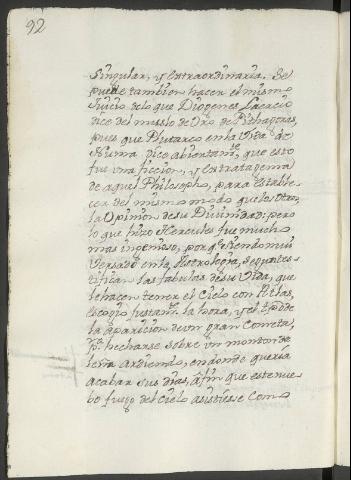 92
Singular, y extraordinaria. Se
puede tambien hacer el mismo
Juicio de lo que Diogenes Laercio
dice del muslo de Oro de Pithagoras,
pues que Plutarco en la Vida de
Numa dice abiertam.te que esto
fue una ficcion, y extratagema
de aquel Philosopho, para estable-
cer del mismo modo que los otros,
la Opinion de su Divinidad: pero
lo que hizo Hercules fue mucho
mas ingenioso, porq.e siendo mui
Versado en la Astrologia, segun tes-
tifican las fabulas de su Vida, que
le hacen tener el Cielo con Atlas,
escogio justam.te la hora, y el t.po de
la aparicion de un gran Cometa,
p.a hecharse sobre un monton de
leña ardiendo, en donde queria
acabar sus dias, a fin que este nue-
bo fuego del Cielo asistiese como